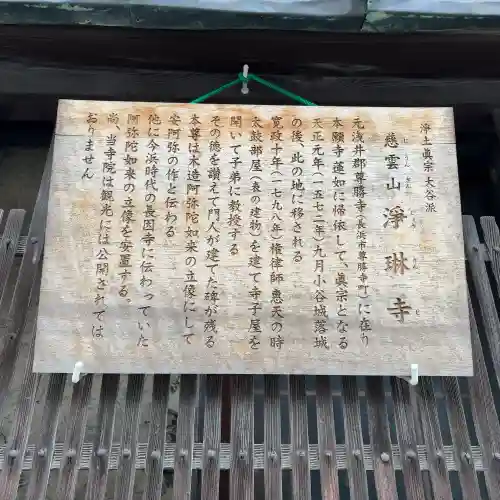 浄土真宗 大谷派
慈雲山 淨琳寺
じうんざん じょうりんじ
元浅井郡尊勝寺(長浜市尊勝寺町)に在り
本願寺蓮如に帰依して、眞宗となる
天正元年(一五七二年)九月小谷城落城
の後、此の地に移される
寛政十年(一七九八年)権律師惠天の時
太鼓部屋(表の建物)を建て寺子屋を
開いて子弟に教授する
その徳を讃えて門人が建てた碑が残る
本尊は木造阿弥陀如来の立像にして
安阿弥の作と伝わる
他に今浜時代の長因寺に伝わっていた
阿弥陀如来の立像を安置する。
尚、当寺院は観光には公開されては
おりません